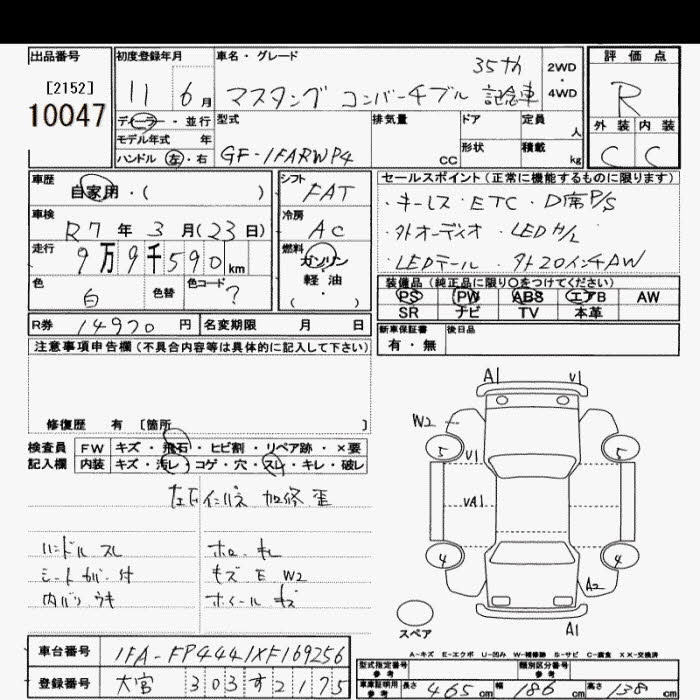 出品番号
[2152]
10047
初度登録年月
11 6月
ディーラー・並行
モデル年式 年
ハンドル 左・右
車名・グレード
35th
マスタング コンバーチブル 記念車
2WD
・
4WD
型式
GF-1FARWP4
排気量
CC
ドア
形状
定員
人
積載
kg
評価点
R
外装 内装
C C
車歴
自家用・( )
車検
R7年3月(23日)
走行
9万9千590km
色
白
色替
色コード
?
シフト
FAT
冷房
AC
燃料
ガソリン
軽油
( ・ )
R券 14970円 名変期限 月 日
セールスポイント(正常に機能するものに限ります)
・キーレス・ETC・D席P/S
・外オーディオ・LED H/L
・LEDテール・外20インチAW
装備品(純正品に限り〇をつけてください)
PS PW ABS エアB AW
SR ナビ TV 本革
新車保証書
有・無
後日品
注意事項申告欄(不具合内容等は具体的に記入して下さい)
修復歴 有 [箇所 ]
検査員
記入欄
FW キズ・飛石・ヒビ割・リペア跡・×要
内装 キズ・汚レ・コゲ・穴・スレ・キレ・破レ
加修 歪
ハンドル スレ
シートカバー付
内バリ ウキ
ホロ キレ
キズ E W2
ホイール キズ
A1
V1
W2
5
5
V1
VA1
4
4
A2
A1
スペア
A-キズ E-エクボ U-凹み W-補修跡 S-サビ C-腐食 XX-交換済
車台番号 1FA-FP4441XF169256
登録番号 大宮 303す2175
型式指定番号
参考
類別区分番号
参考
車庫証明用
参考
長さ 465cm 幅 186cm 高さ 138cm